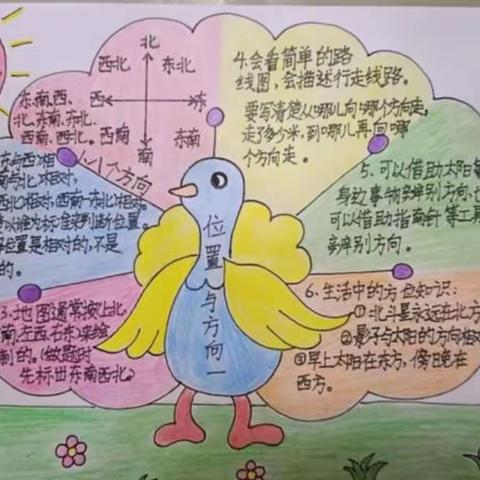 北
西北 东北
西 东
西南 东南
南
东、南、西、
北、东南、东北、
西南、西北。
八个方向
东与西相
南与北相对,
西北相对,西南东北相对
以谁为标准来判断位置。
位置是相对的,不是
的。
3.地图通常按(上北
南,左西,右东)来绘
制的。(做题时
先标出东南西北。)
4.会看简单的路
线图,会描述行走线路。
要写清楚从哪儿向哪个方向走,
走了多少米,到哪儿再向哪
个方向走。
5.可以借助太阳等
身边事物辨别方向,也
可以借助指南针等工具
辨别方向。
6.生活中的方位知识:
①北斗星永远在北方
②影子与太阳的方向相对
③早上太阳在东方,傍晚在
西方。
位置与方向一